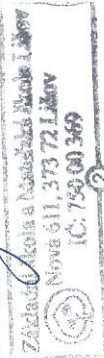 Základní škola a Mateřská škola Lišov
Nová 611, 373 72 Lišov
IČ: 750 00 369